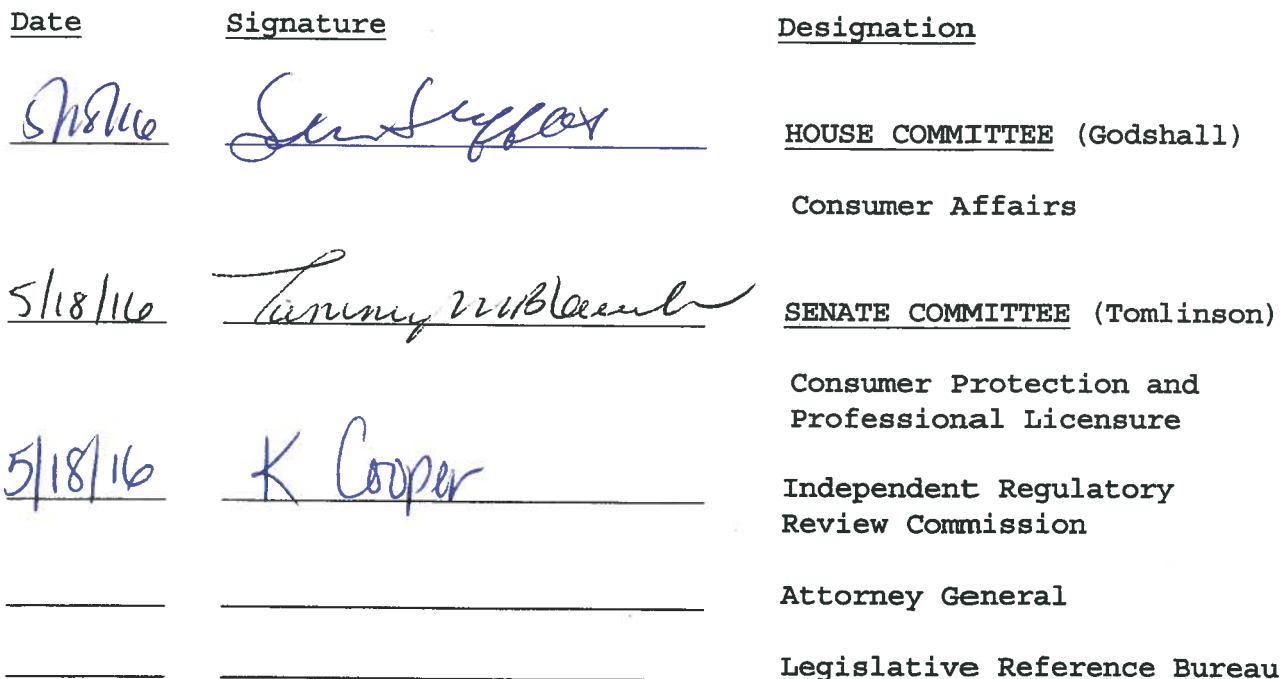 Date Signature Designation
5/18/16 HOUSE COMMITTEE (Godshall)
Consumer Affairs
5/18/16 Tammy SENATE COMMITTEE (Tomlinson)
Consumer Protection and
Professional Licensure
5/18/16 K Cooper
Independent Regulatory
Review Commission
Attorney General
Legislative Reference Bureau